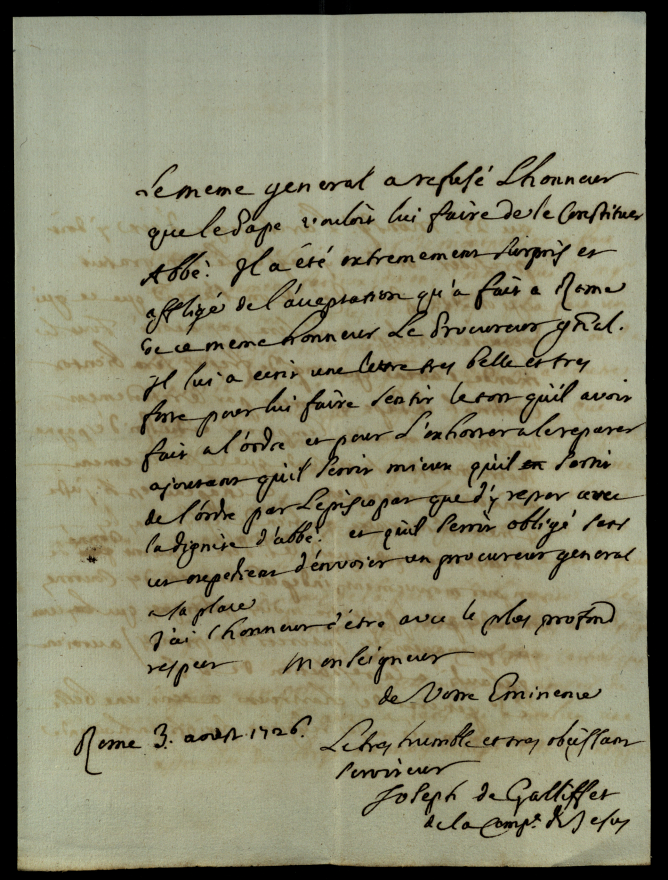 Le meme general a refusé Lhonneur
que le Pape vouloit lui faire de le Constituer
Abbé. Il a été extremement surpris et
affligé de l'acceptation qu'a fait a Rome
de ce meme honneur Le Procureur gñal.
Il lui a ecrit une lettre tres belle et tres
forte pour lui faire sentir le tort qu'il avoit
fait a l'ordre et pour L'exhorter a le reparer
ajoutant qu'il seroit mieux qu'il sortit
de l'ordre par Lepiscopat que d'y rester avec
la dignité d'abbé. et qu'il seroit obligé sans
cet expedient d'envoier un procureur general
a sa place
J'ai lhonneur d'être avec le plus profond
respect Monseigneur
de Votre Eminence
Rome 3. aoust 1726.
Le tres humble et tres obeissant
serviteur
Joseph de Galliffet
de la Comp.e de Jesus